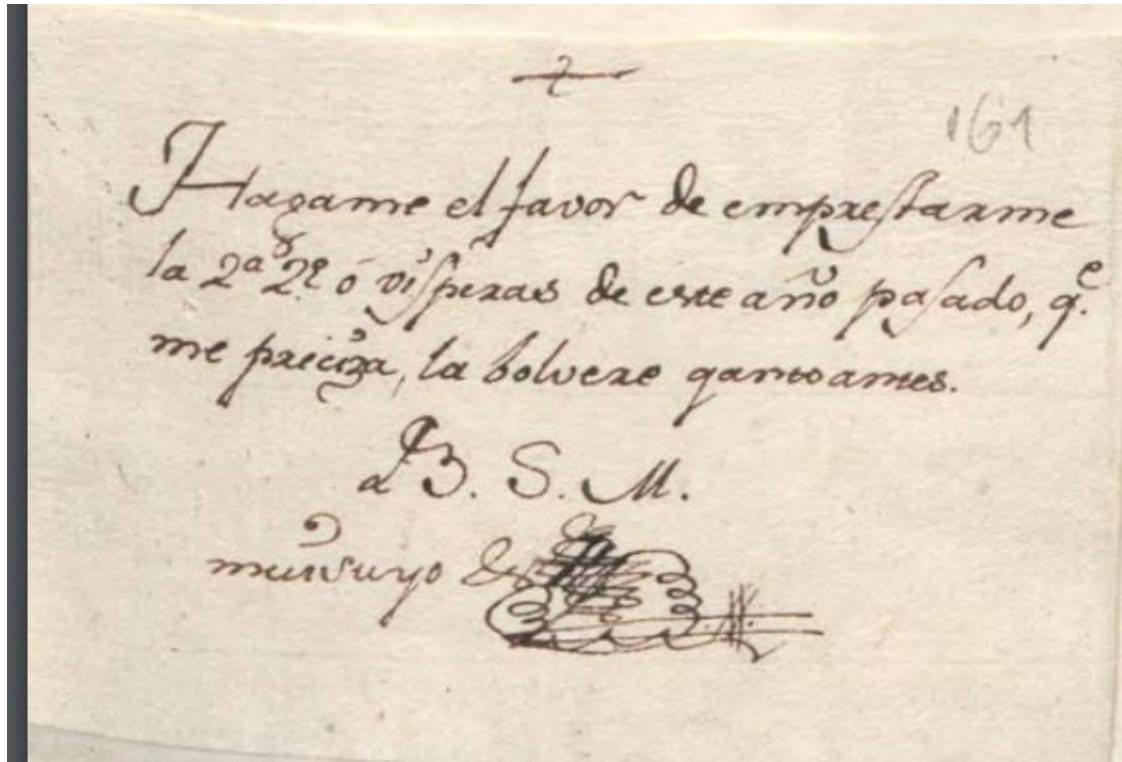 161
Hagame el favor de emprestarme
la 2ª 2ª ó visperas de este año pasado, q.e
me preciza, la bolvere quanto antes.
B. S. M.
mui suyo